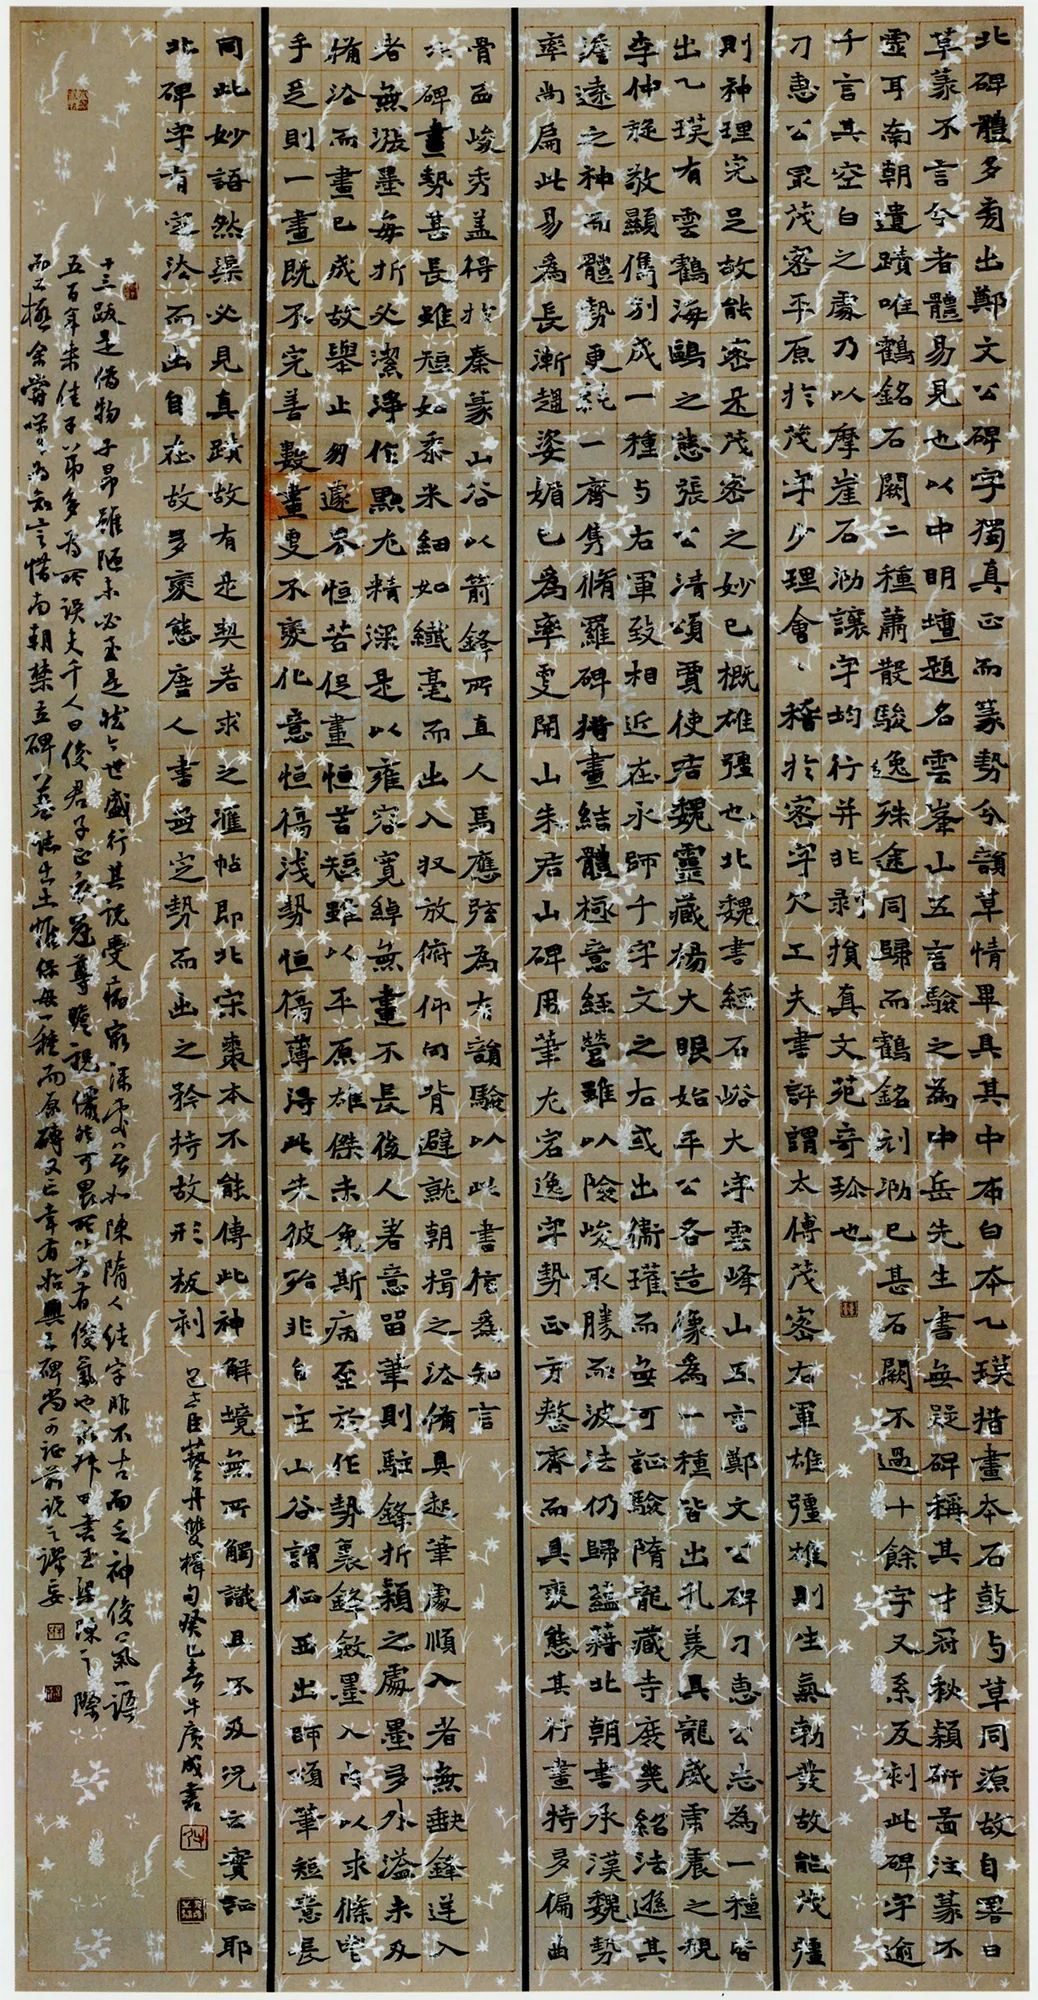 北碑體多旁出鄭文公碑字獨真正而篆勢分韻草情畢具其中布白本乙瑛措畫本石鼓与草同源故自署曰
草篆不言分者體易見也以中明壇題名雲峯山五言驗之為中岳先生書無疑碑稱其才冠秋穎研啚注篆不
虛耳南朝遺蹟唯鶴銘石闕二種蕭散駿逸殊途同歸而鶴銘刻泐已甚石闕不過十餘字又系反刺此碑字逾
千言其空白之處乃以摩崖石泐讓字均行并非剥損真文苑奇珍也
刁惠公最茂密平原於茂字少理會會稽於密字欠工夫書評謂太傅茂密右軍雄彊雄則生氣勃發故能茂彊
則神理完足故能密是茂密之妙已概雄彊也北魏書經石峪大字雲峰山五言鄭文公碑刁惠公志為一種皆
出乙瑛有雲鶴海鷗之態張公清頌賈使君魏靈藏楊大眼始平公各造像為一種皆出孔羨具龍威虎震之規
李仲旋敬顯儁别成一種与右軍致相近在永師千字文之右或出衛瓘而無可証驗隋龍藏寺庶幾紹法遜其
澹遠之神而體勢更純一齊雋脩羅碑措畫結體極意經營雖以險峻取勝而波法仍歸蘊蔣北朝書承漢魏勢
率尚扁此易為長漸趨姿媚已為率更開山朱君山碑用筆尤宕逸字勢正方整齊而具變態其行畫特多偏曲
骨血峻秀盖得於秦篆山谷以箭鋒所直人馬應弦為有韻驗以此書信為知言
北碑畫勢甚長雖短如黍米細如纖毫而出入收放俯仰向背避就朝揖之法備具起筆處順入者無缺鋒逆入
者無漲墨每折必潔淨作點尤精深是以雍容寬綽無畫不長後人著意留筆則駐鋒折穎之處墨多外溢未及
備法而畫已成故舉止匆遽界恒苦促畫恒苦短雖以平原雄傑未免斯病至於作勢裹鋒斂墨入内以求條鬯
手足則一畫既不完善數畫更不變化意恒傷淺勢恒傷薄得此失彼殆非自主山谷謂征西出師頌筆短意長
同此妙語然渠必見真蹟故有是契若求之滙帖即北宋棗本不能傳此神解境無所觸識且不及況云實証耶
北碑字有定法而出自在故多變態唐人書無定勢而出之矜持故形板剌
邑老臣藝舟雙楫句癸巳春牛廣成書
十三跋是偽物子昂雖陋未必至是然今世盛行其說受病最深處如陳隋人结字非不古而乏神俊氣一語
五百年来佳子弟多為所误夫千人曰俊君子正衣冠尊瞻視儼然可畏所以為有俊氣也永禅四書至梁陳之際
而工極余嘗为知言惜南朝禁立碑墓誌出土保母一種而原磚又亡幸有始興王碑尚可証前说之謬妄